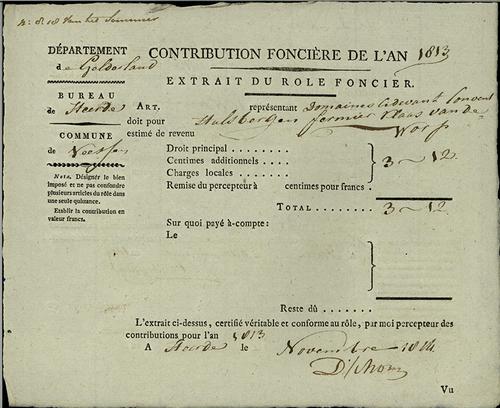 DÉPARTEMENT
de Gelderland
BUREAU
de Heerde
COMMUNE
de
Nota. Désigner le bien
imposé et ne pas confondre
plusieurs articles du rôle dans
une seule quitance.
Etablir la contribution en
valeur francs.
CONTRIBUTION FONCIÈRE DE L'AN 1813
EXTRAIT DU ROLE FONCIER.
ART. représentant Domaines cidevant Convent
doit pour Hulsbergen fermier Klaas van de
estimé de revenu Worp
Droit principal
Centimes additionnels
Charges locales 3 - 12
Remise du percepteur à centimes pour francs.
TOTAL 3 - 12
Sur quoi payé à-compte:
Le
Reste dû
L'extrait ci-dessus, certifié véritable et conforme au rôle, par moi percepteur des
contributions pour l'an 1813
A Heerde le Novembre 1814
Vu